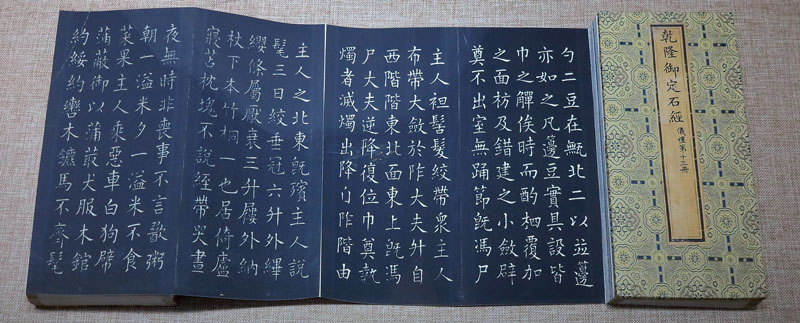 乾隆御定石經
儀禮第十三冊
勺二豆在甒北二以並籩
亦如之凡籩豆實具設皆
巾之觶俟時而酌柶覆加
之面枋及錯建之小斂辟
奠不出室無踊節既馮尸
主人袒髺髮絞帶衆主人
布帶大斂於阼大夫升自
西階階東北面東上既馮
尸大夫逆降復位巾奠執
燭者滅燭出降自阼階由
主人之北東既殯主人說
髦三日絞垂冠六升外縪
纓條屬厭衰三升屨外納
杖下本竹桐一也居倚廬
寢苫枕塊不說絰帶哭晝
夜無時非喪事不言歠粥
朝一溢米夕一溢米不食
菜果主人乘惡車白狗幦
蒲蔽御以蒲菆犬服木錧
約綏約轡木鑣馬不齊髦